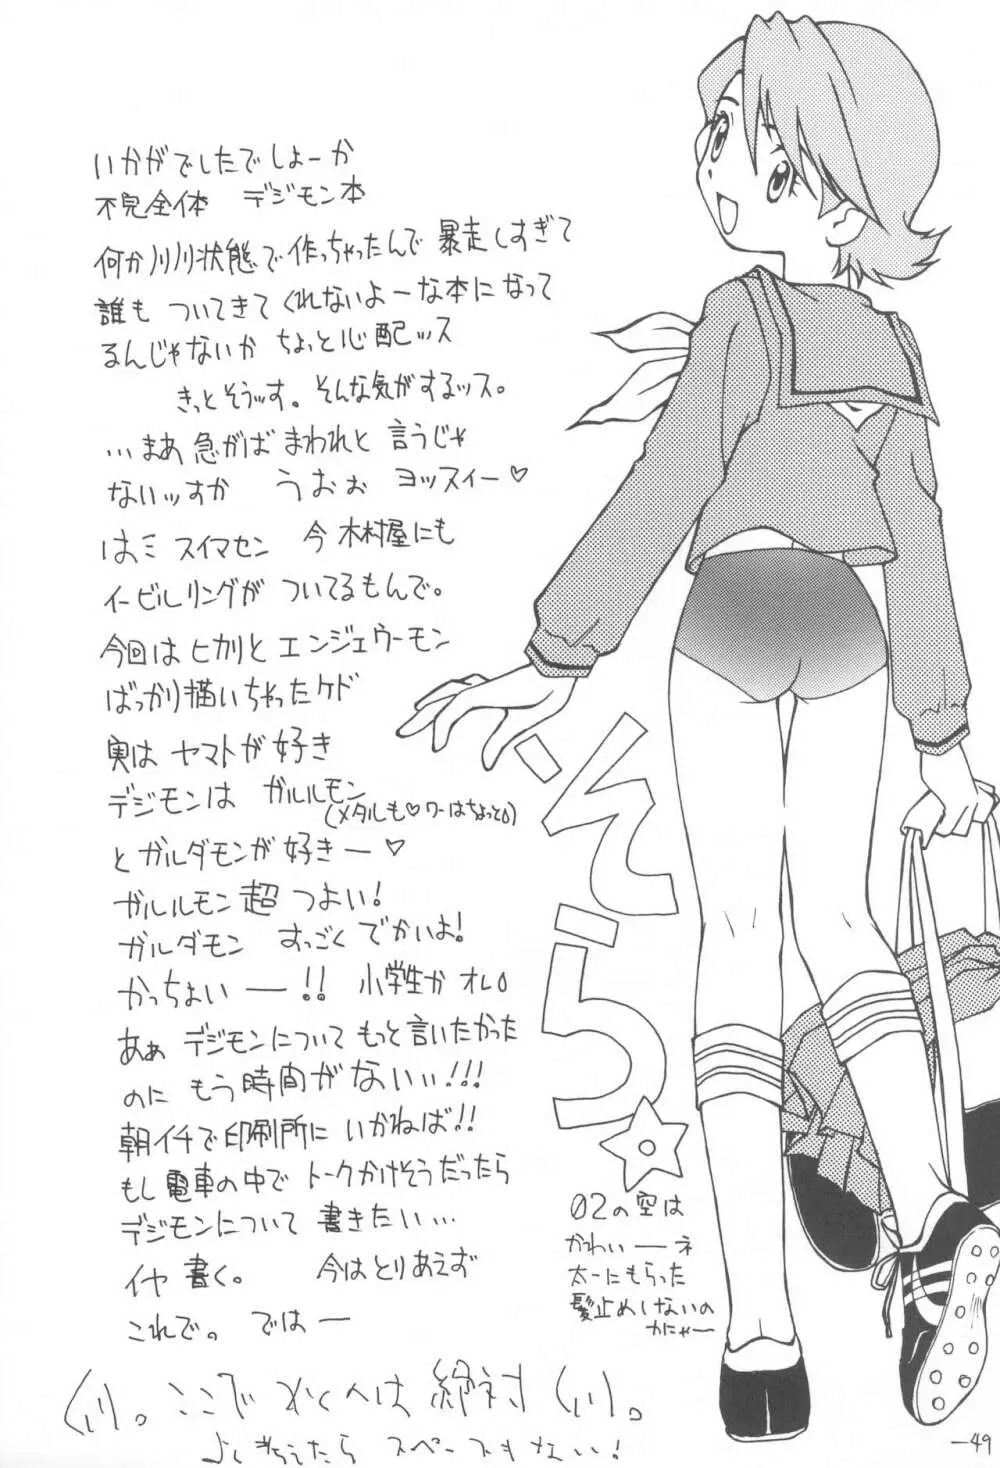 いかがでしたでしょーか
不完全体 デジモン本
何か川川状態で作っちゃったんで 暴走しすぎて
誰も ついてきてくれないよーな本になって
るんじゃないか ちょっと心配ッス
きっとそうッす。そんな気がするッス。
…まあ 急がば まわれと 言うじゃ
ないッすか うおぉ ヨッスィー♡
はミ スイマセン 今 木村屋にも
イービルリングが ついてるもんで。
今回は ヒカリと エンジェウーモン
ばっかり描いちゃったケド
実は ヤマトが好き
デジモンは ガルルモン
(メタルも♡ワーはちょっと△)
とガルダモンが 好きー♡
ガルルモン 超 つよい!
ガルダモン すっごく でかいよ!
かっちょいー!! 小学生か オレ。
あぁ デジモンについて もっと言いたかった
のに もう 時間がないぃ!!!
朝イチで 印刷所に いかねば!!
もし 電車の中で トークかけそうだったら
デジモンについて 書きたい…
イヤ 書く。 今は とりあえず
これで。 ではー
ここで は 絶対
スペースもない!
そら☆
02の空は
かわいーネ
太一にもらった
髪止めしないの
かにゃー
-49